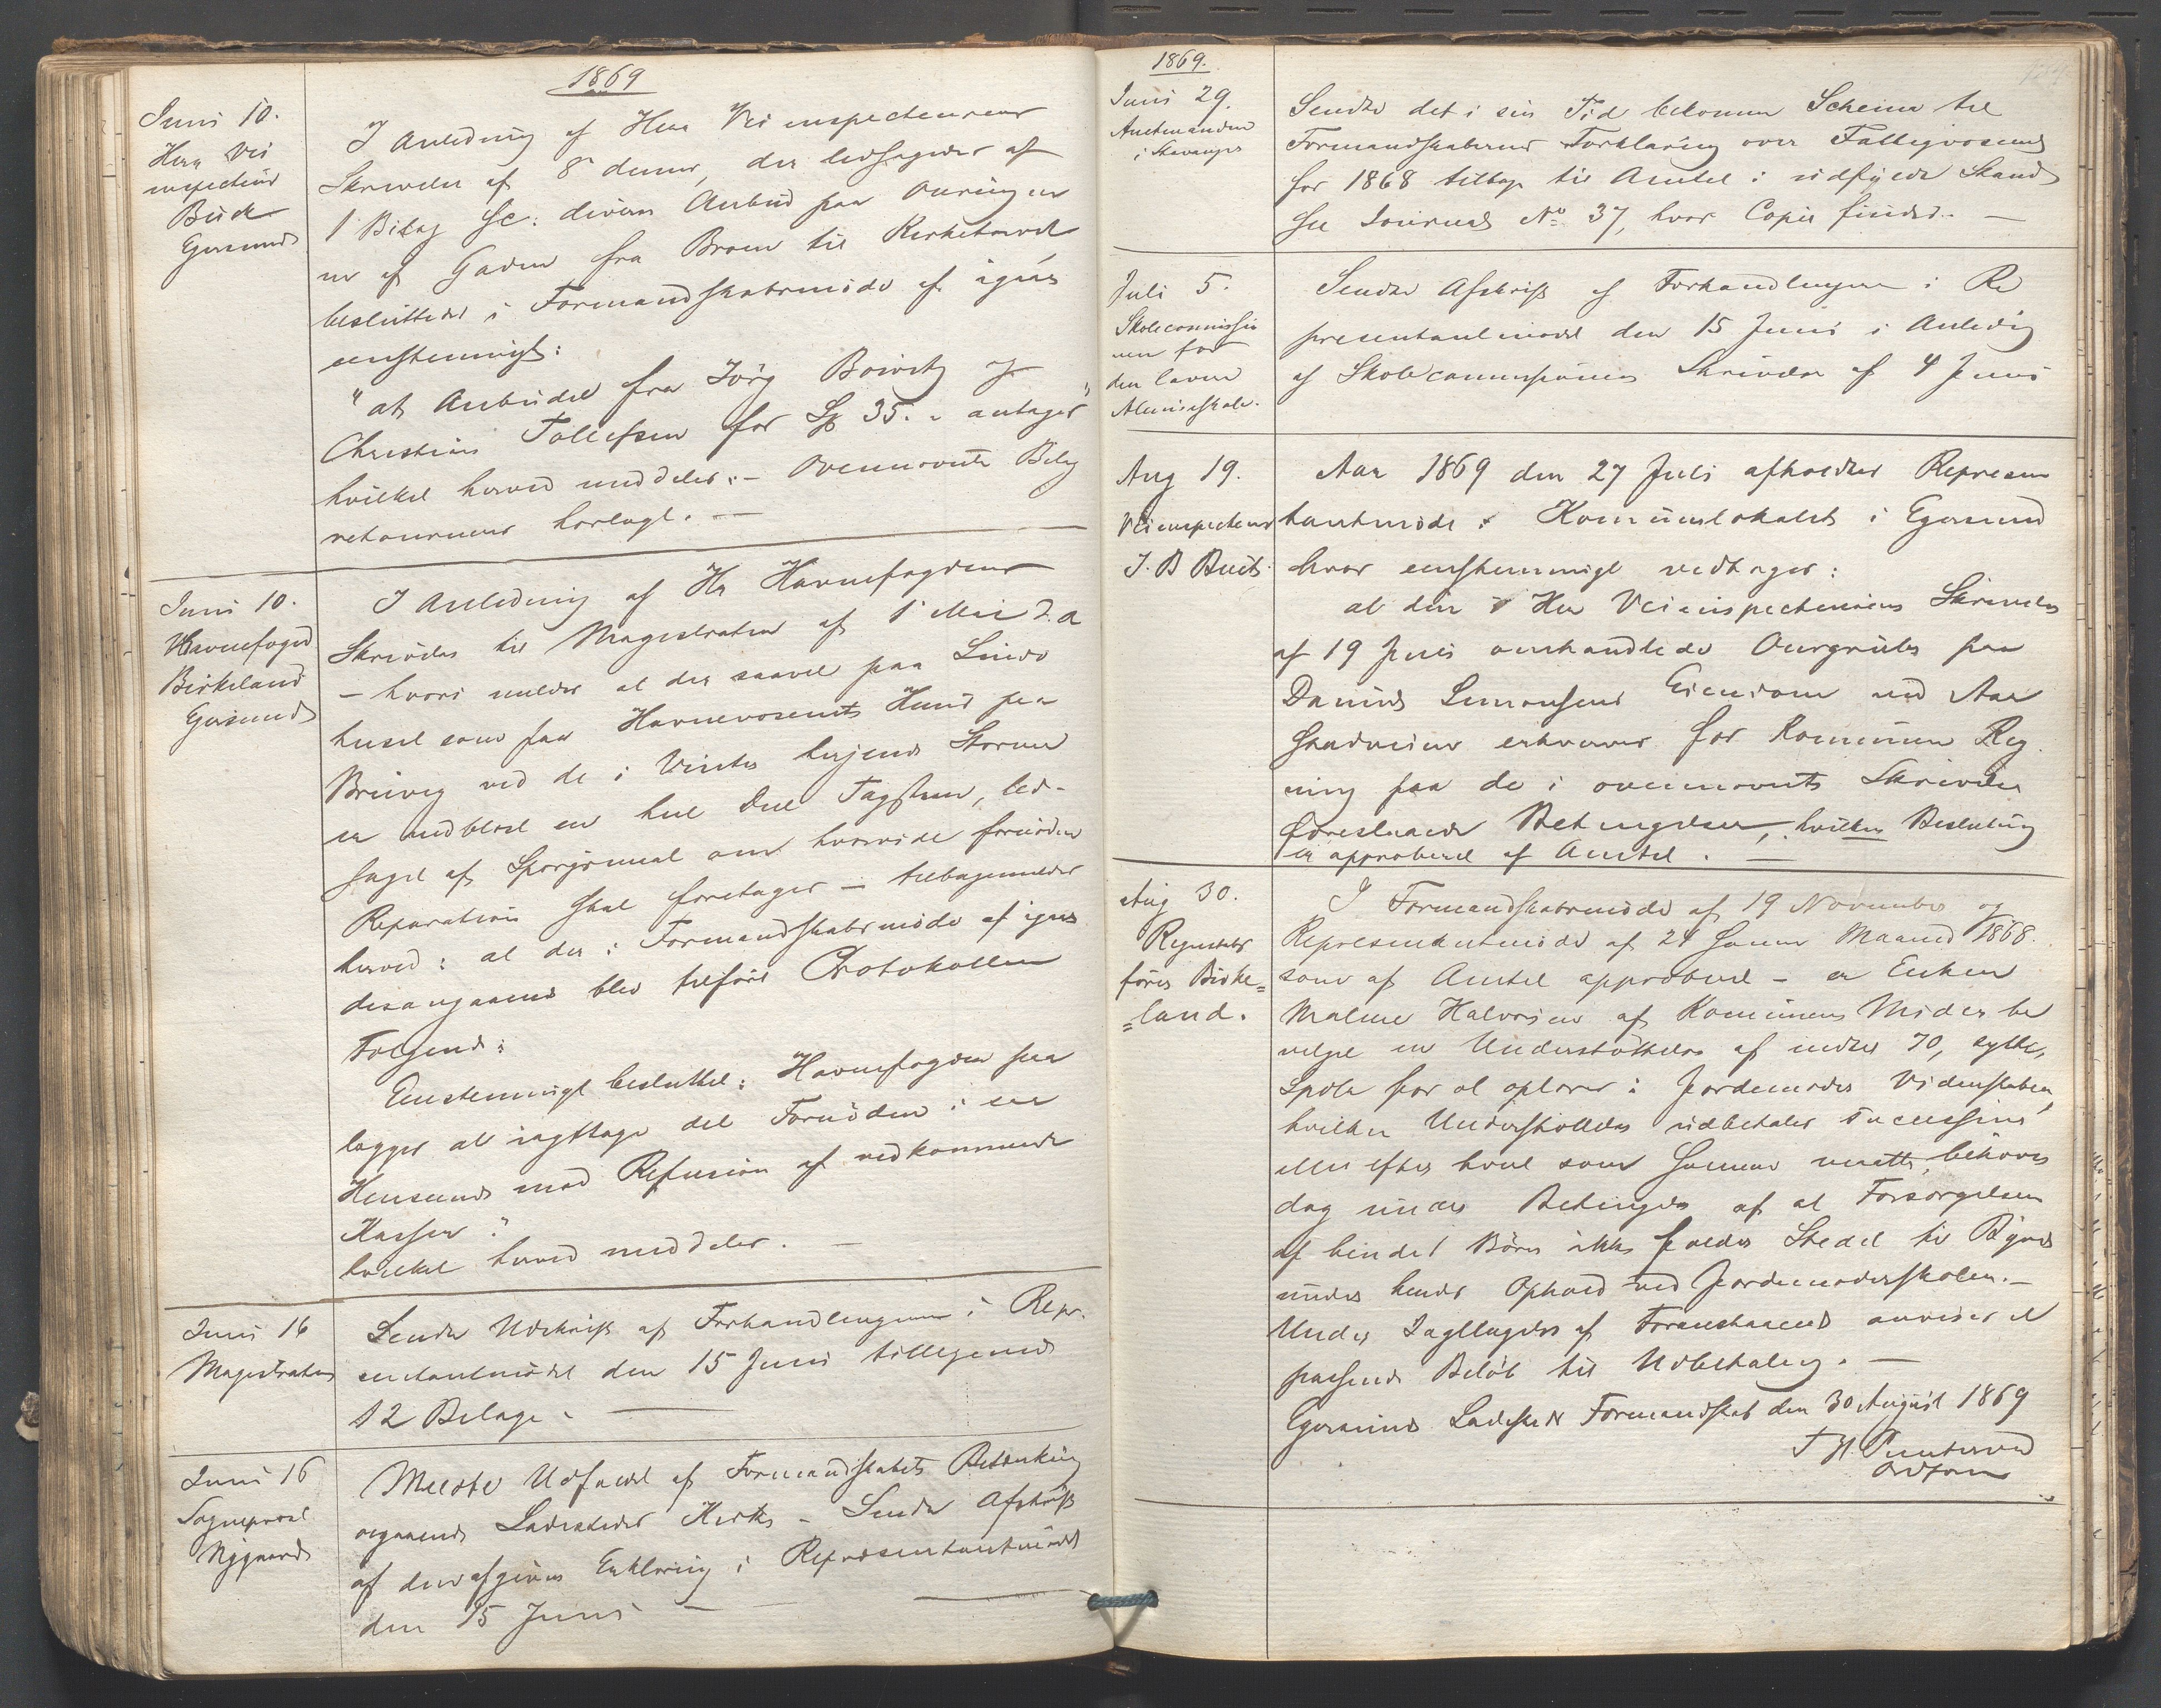 1869
Juni 10.
Herr Vei
inspecteur
Buck
Egersund
I Anledning af Herr Veiinspecteurens
Skrivelse af 8 dennes, der ledsagedes af
1 Bilag sc: divers Anbud paa Ouringen
af Gaden fra Broen til Kirketorvet
besluttedes i Formandskabsmöde af igaar
enstemmigt:
"at Anbudet fra Jörg Boiwitz og
Christian Tollefsen for Sp 35. - antages"
hvilket herved meddeles. - Ovennævnte Bilag
retourneres herlagt. -
Juni 10.
Havnefoged
Birkeland
Egersund
I Anledning af Hr Havnefogdens
Skrivelse til Magistraten af 1 Mai d.a
- hvori meldes at der saavel paa
huset som paa Havnevæsenets Huus paa
ved de i Vinter herjende Storme
er nedblæst en heel Deel Tagsteen, led-
saget af Spørgsmaal om hvorvidt fornöden
Reparation skal foretages - tilbagemeldes
herved: at der i Formandskabsmöde af igaar
desangaaende blev tilført Protokollen
Følgende:
Eenstemmigt besluttet: Havnefogden paa
lægges at iagttage det Fornödne i saa
Henseende mod Refusion af vedkommende
Kasser."
hvilket herved meddeles. -
Juni 16
Magistraten
Sendt Udskrift af Forhandlingerne i Repr.
sentantmödet den 15 Juni tilligemed
12 Bilage. -
Juni 16
Sogneprest
Nygaard
Meldte Udfaldet af Formandskabets Betænkning
angaaende Ladestedets Kirke - Sendt Afskrift
af den afgivne Erklæring i Repræsentantmödet
den 15 Juni -
1869.
Juni 29.
Amtmanden
i Stavanger
Sendte det i sin Tid bekomne Schema til
Formandskabernes Forklaring over Fattigvæsenet
for 1868 tilbage til Amtet i udfyldt Stand
See Journal No 37, hvor Copie findes. -
Juli 5.
Skolecommissio
nen for
den lavere
Almueskole.
Sendte Afskrift af Forhandlingen i Re
presentantmödet den 15 Juni i Anledning
af Skolecommissionens Skrivelse af 4 Juni
Aug 19.
Veiinspecteur
J. B Buck.
Aar 1869 den 27 Juli afholdtes Represen
tantmöde i Kommunelokalet i Egersund
hvor enstemmigt vedtoges:
at den i Herr Veiinspecteurens Skrivelse
af 19 Juni omhandlede Ourgrube paa
Daniel Simonsens Eiendom ved Aar
stadveien erhverves for Kommunens Reg
ning paa de i ovennævnte Skrivelse
foreslaaede Betingelser, hvilken Beslutning
er approberet af Amtet. -
Aug 30.
Regnskabs
förer Birke=
=land.
I Formandskabsmöde af 19 November og
Representantmöde af 24 samme Maaned 1868.
som af Amtet approberet - er Enken
Malene Halvorsen af Kommunens Midler be
vilget en Understöttelse af indtil 70, sytti,
Spdlr for at oplæres i Jordemoder Videnskaben,
hvilken Understöttelse udbetales successive
eller efter hvert som samme maatte behöves
dog under Betingelse af at Forsørgelsen
af hendes Börn ikke falder Stedet til Byrde
under hendes Ophold ved Jordemoderskolen. -
Under Iagttagelse af Foranstaaende anvises et
passende Beløb til Udbetaling. -
Egersunds Ladesteds Formandskab den 30 August 1869
T H Puntervold
Ordförer